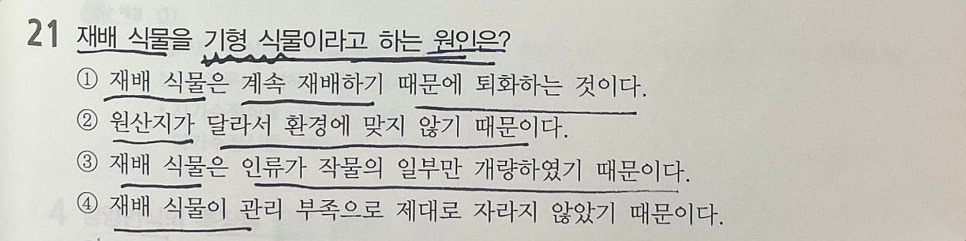 21 재배 식물을 기형 식물이라고 하는 원인은?
① 재배 식물은 계속 재배하기 때문에 퇴화하는 것이다.
② 원산지가 달라서 환경에 맞지 않기 때문이다.
③ 재배 식물은 인류가 작물의 일부만 개량하였기 때문이다.
④ 재배 식물이 관리 부족으로 제대로 자라지 않았기 때문이다.